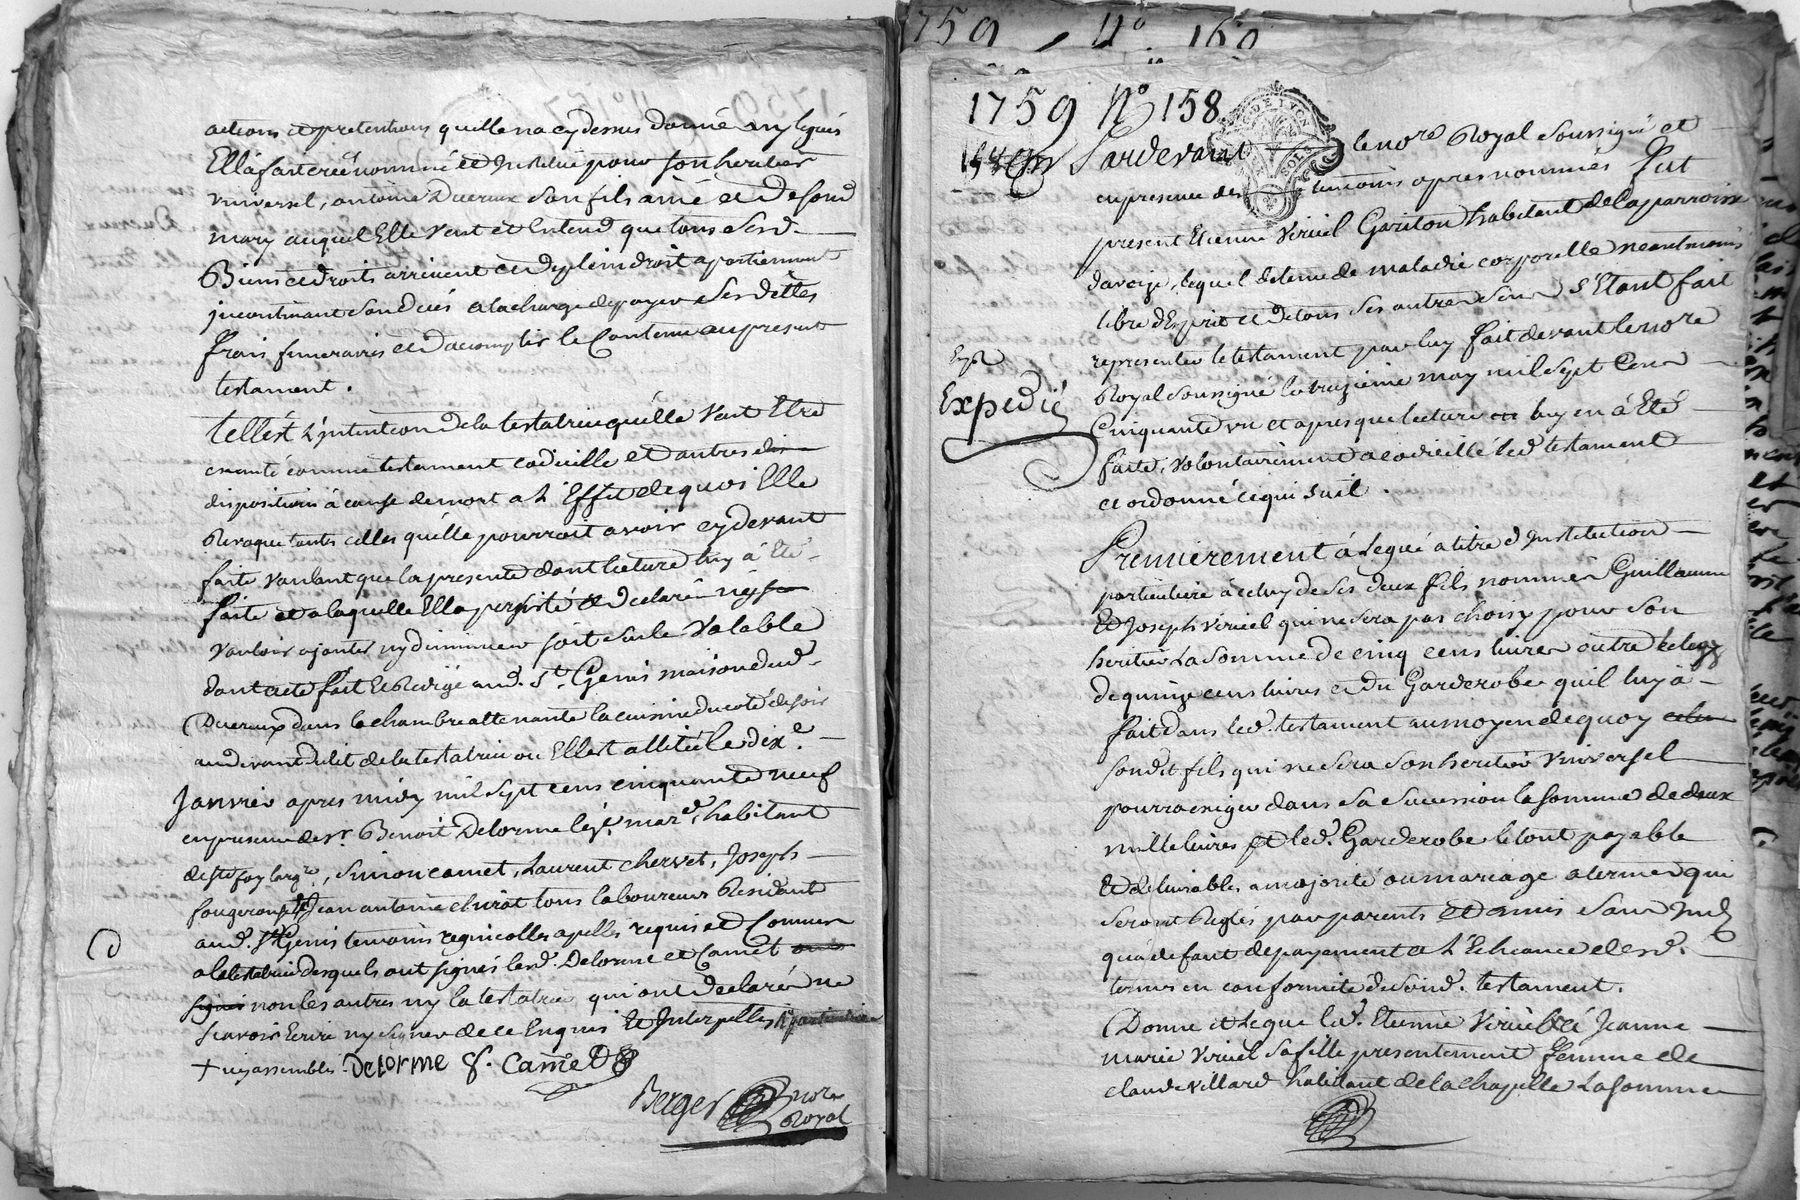 actions et pretentions quelle na cy dessus donné ny legués
Ella fait creé nommé et Institué pour son heritier
vniversel, antoine Ducreux son fils ainé et de son d
mary auquel Elle veut et Entend que tous ses d
Biens et droits arrivent et de plein droit apartiennent
jncontinant son decés a la charge de payer ses dettes
frais funeraires et d'acomplir le Contenu au present
testament.
telle st L'jntention de la testatrice quélle veut Etre
executé comme testament codicille et autres
dispositions à cause de mort a L'Effet de quoi Elle
Revoque toutes celles quélle pourroit avoir cy devant
faite voulant que la presente dont lecture luy à Eté
faite et a laquelle Ella persisté et declaré ny
vouloir ajouter ny diminuer soit seule valable
dont acte fait et Redigé aud. St Genis maison dud
Ducreux dans la chambre attenante la cuisine du coté de soir
au devant du lit de la testatrice ou Elle st allitée le dixe
Janvier apres midy mil sept cens cinquante neuf
en presence de sr Benoit Delorme mard habitant
de ste foy largre, Simon camet, Laurent chervet, Joseph
fougerouse et Jean antoine chirat tous laboureurs Residant
aud. st Genis temoins regnicolles apellés requis et Connus
a la testatrice desquels ont signés lesd. Delorme et Camet
non les autres ny la testatrice qui ont declarés ne
scavoir Ecrire ny signer de ce Enquis Et Interpellés
+ ny assembles Delorme S. Camet
Berger nore
Royal
1759 No 160
1759 No 158
Pardevant le nore Royal soussigné et
en presence des temoins apres nommés fut
present Etienne Viricel Gariton habitant de la parroisse
daveize, lequel detenu de maladie corporelle neantmoins
libre d'Esprit et de tous ses autres sens s'Etant fait
representer le testament par luy fait devant le nore
Royal soussigné le treizieme may mil sept Cens
Cinquante vn et apres que lecture luy en à Eté
faite, volontairement a codicillé led testament
et ordonné ce qui suit.
Expedié
Premierement à Legué a titre d'Institution
particuliere à celuy de ses deux fils nommés Guillaume
Et Joseph viricel qui ne sera pas choisy pour son
heritier La Somme de cinq cens livres outre le legs
de quinze cens livres et du Garderobe qu'il luy à
fait dans led. testament au moyen de quoy
sondit fils qui ne sera son heritier vniversel
pourra exiger dans sa succession la somme de deux
mille livres et led. Garderobe le tout payable
Et delivrables a majorité ou mariage a termes qui
seront Reglés par parents et amis sans
qu'a defaut de payement a L'Echeance desd.
termes en conformité de sond. testament.
Donne et Legue led. Etienne viricel à Jeanne
marie viricel sa fille presentement femme de
claude villard habitant de la chapelle La somme